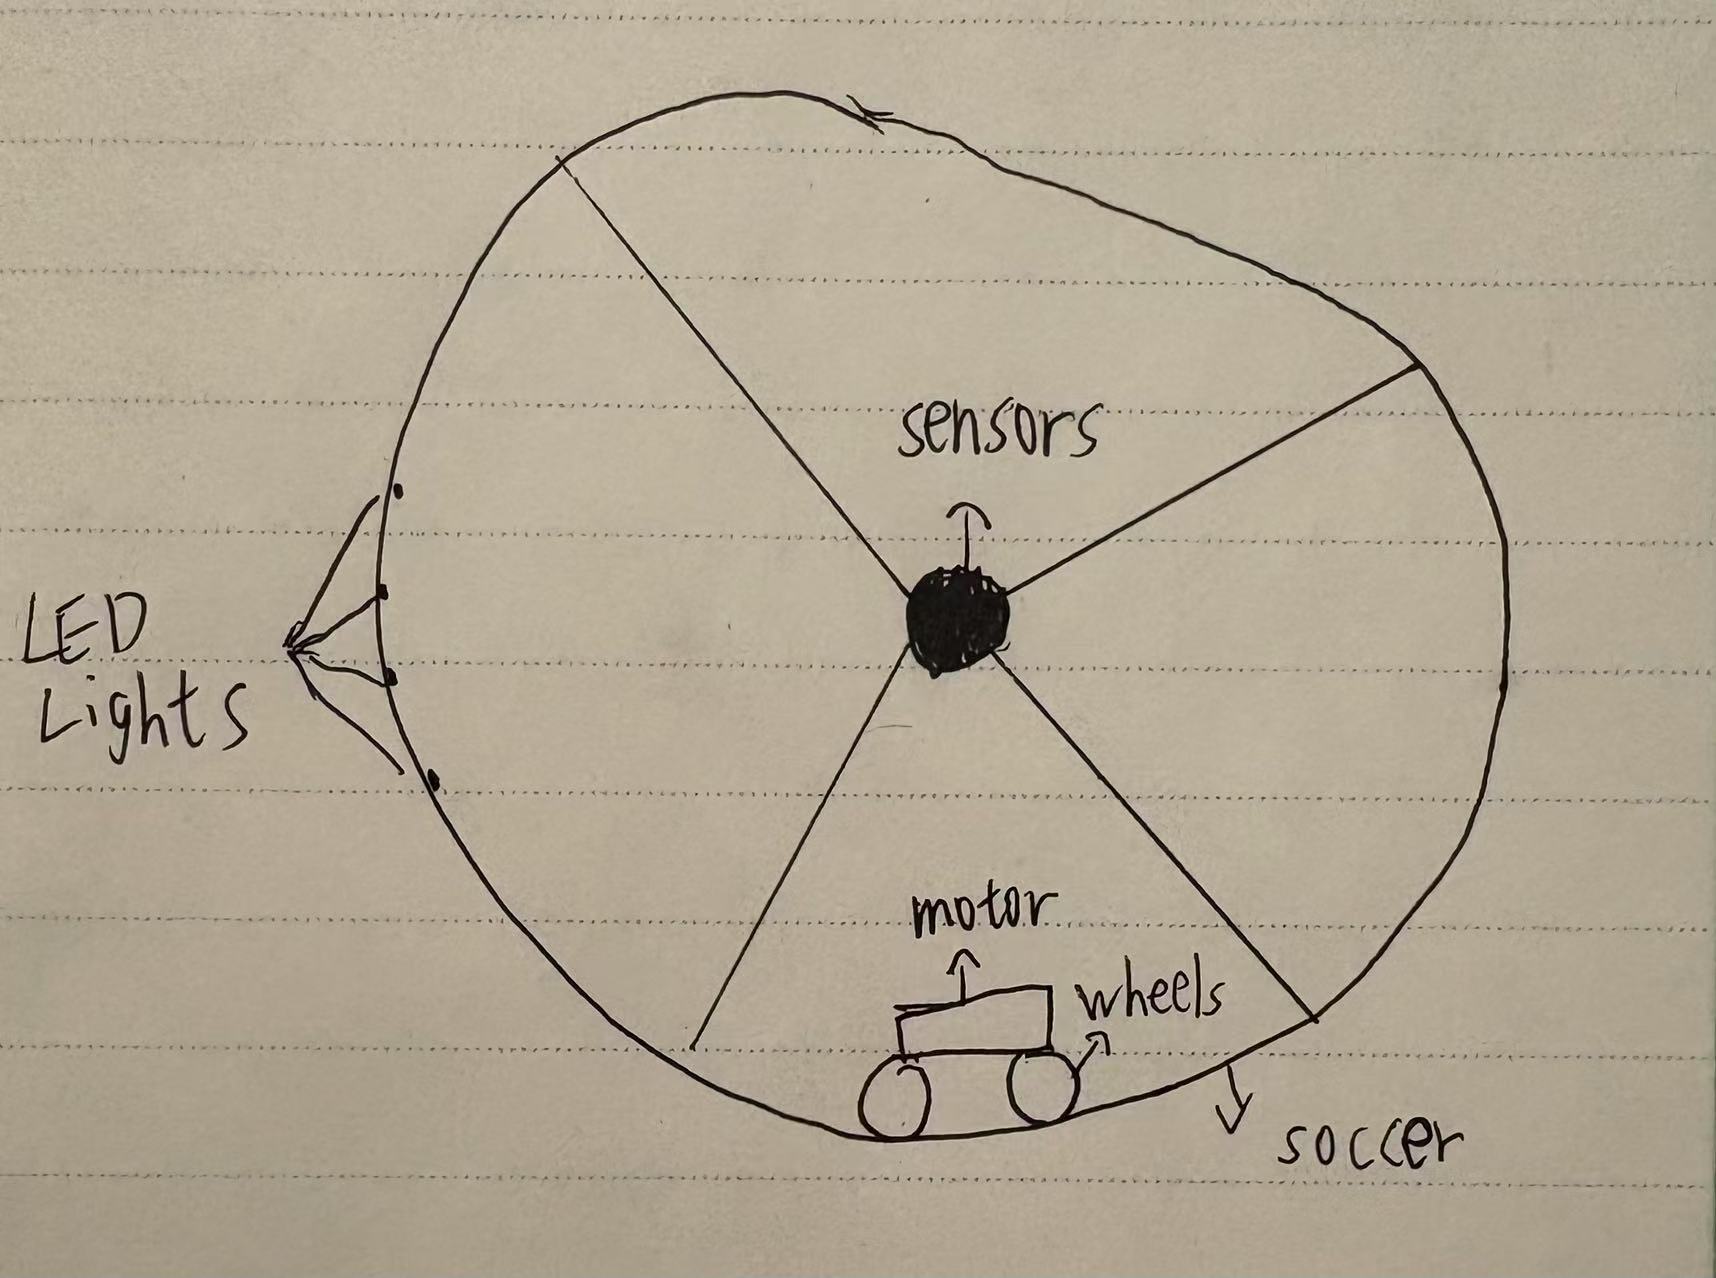 sensors
LED
Lights
motor
wheels
soccer